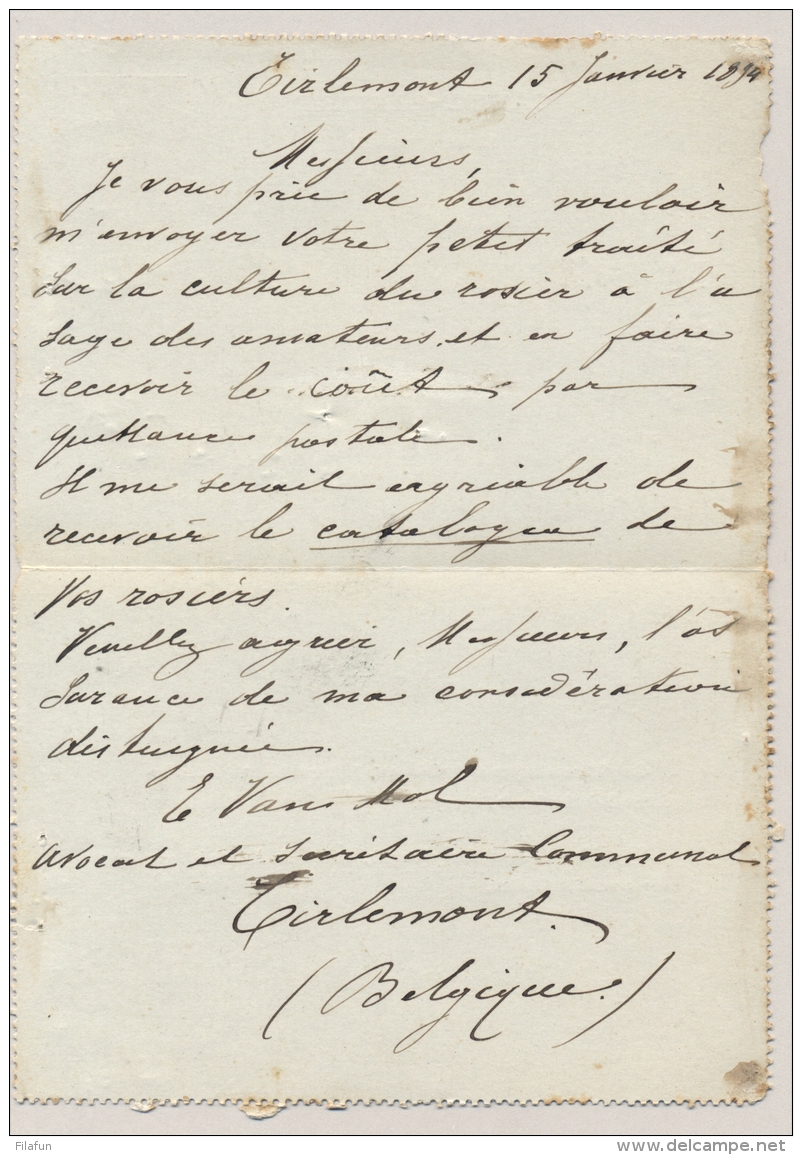 Tirlemont 15 Janvier 1894
Messieurs,
Je vous prie de bien vouloir
m'envoyer votre petit traité
sur la culture du rosier à l'u
sage des amateurs, et en faire
recevoir le coût par
quittance postale.
Il me serait agréable de
recevoir le catalogue de
vos rosiers.
Veuillez agréer, Messieurs, l'as
surance de ma considération
distinguée.
E Van Mol
avocat et secrétaire Communal
Tirlemont.
(Belgique.)
Filafun
www.delcampe.net